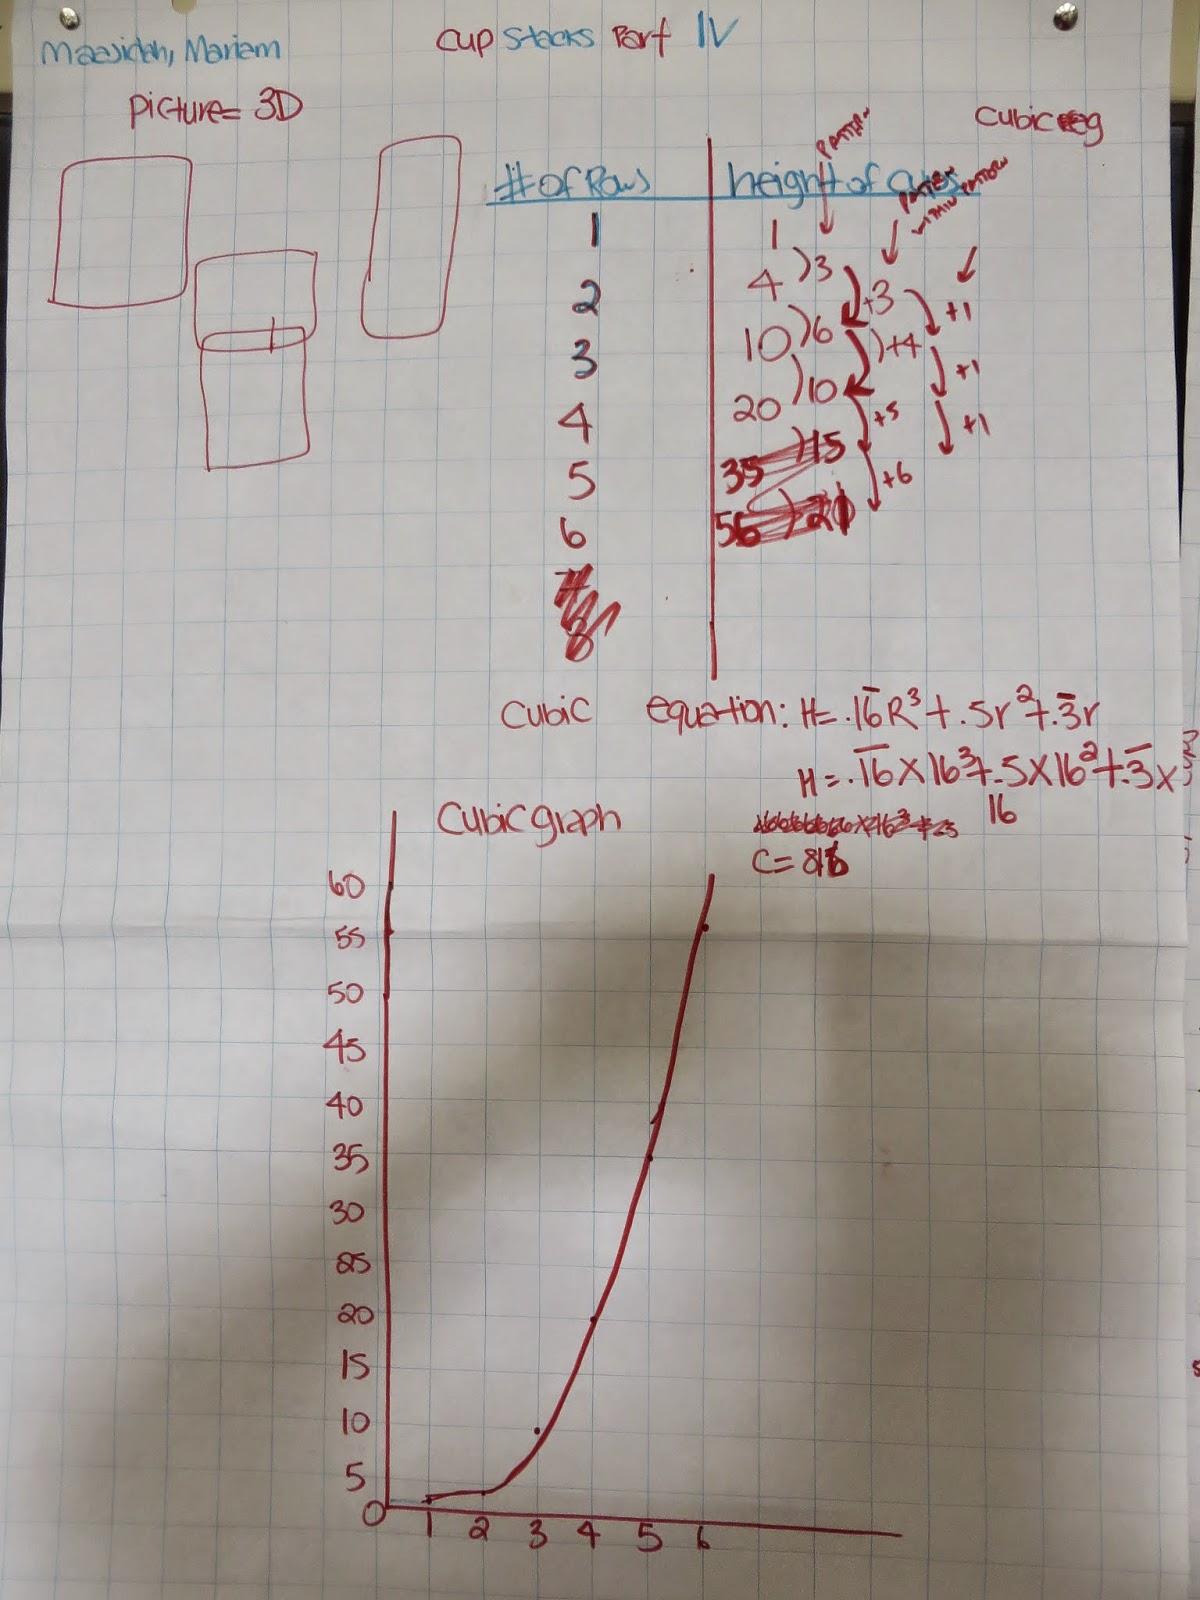 Maajidah, Mariam
Cup Stacks Part IV
Picture= 3D
Cubic eg
# of Rows
height of cups
Pattern
Pattern
within pattern
1 1
)3
2 4
+3 +1
3 10 )6
)+4 +1
4 20 )10
+5 +1
5 35 )15
+6
6 56 )21
7
8
Cubic equation: H=.16̅R³+.5r²+.3̅r
H=.1̅6̅×16³+.5×16²+.3̅×
16
C=816
Cubic graph
60
55
50
45
40
35
30
25
20
15
10
5
0 1 2 3 4 5 6